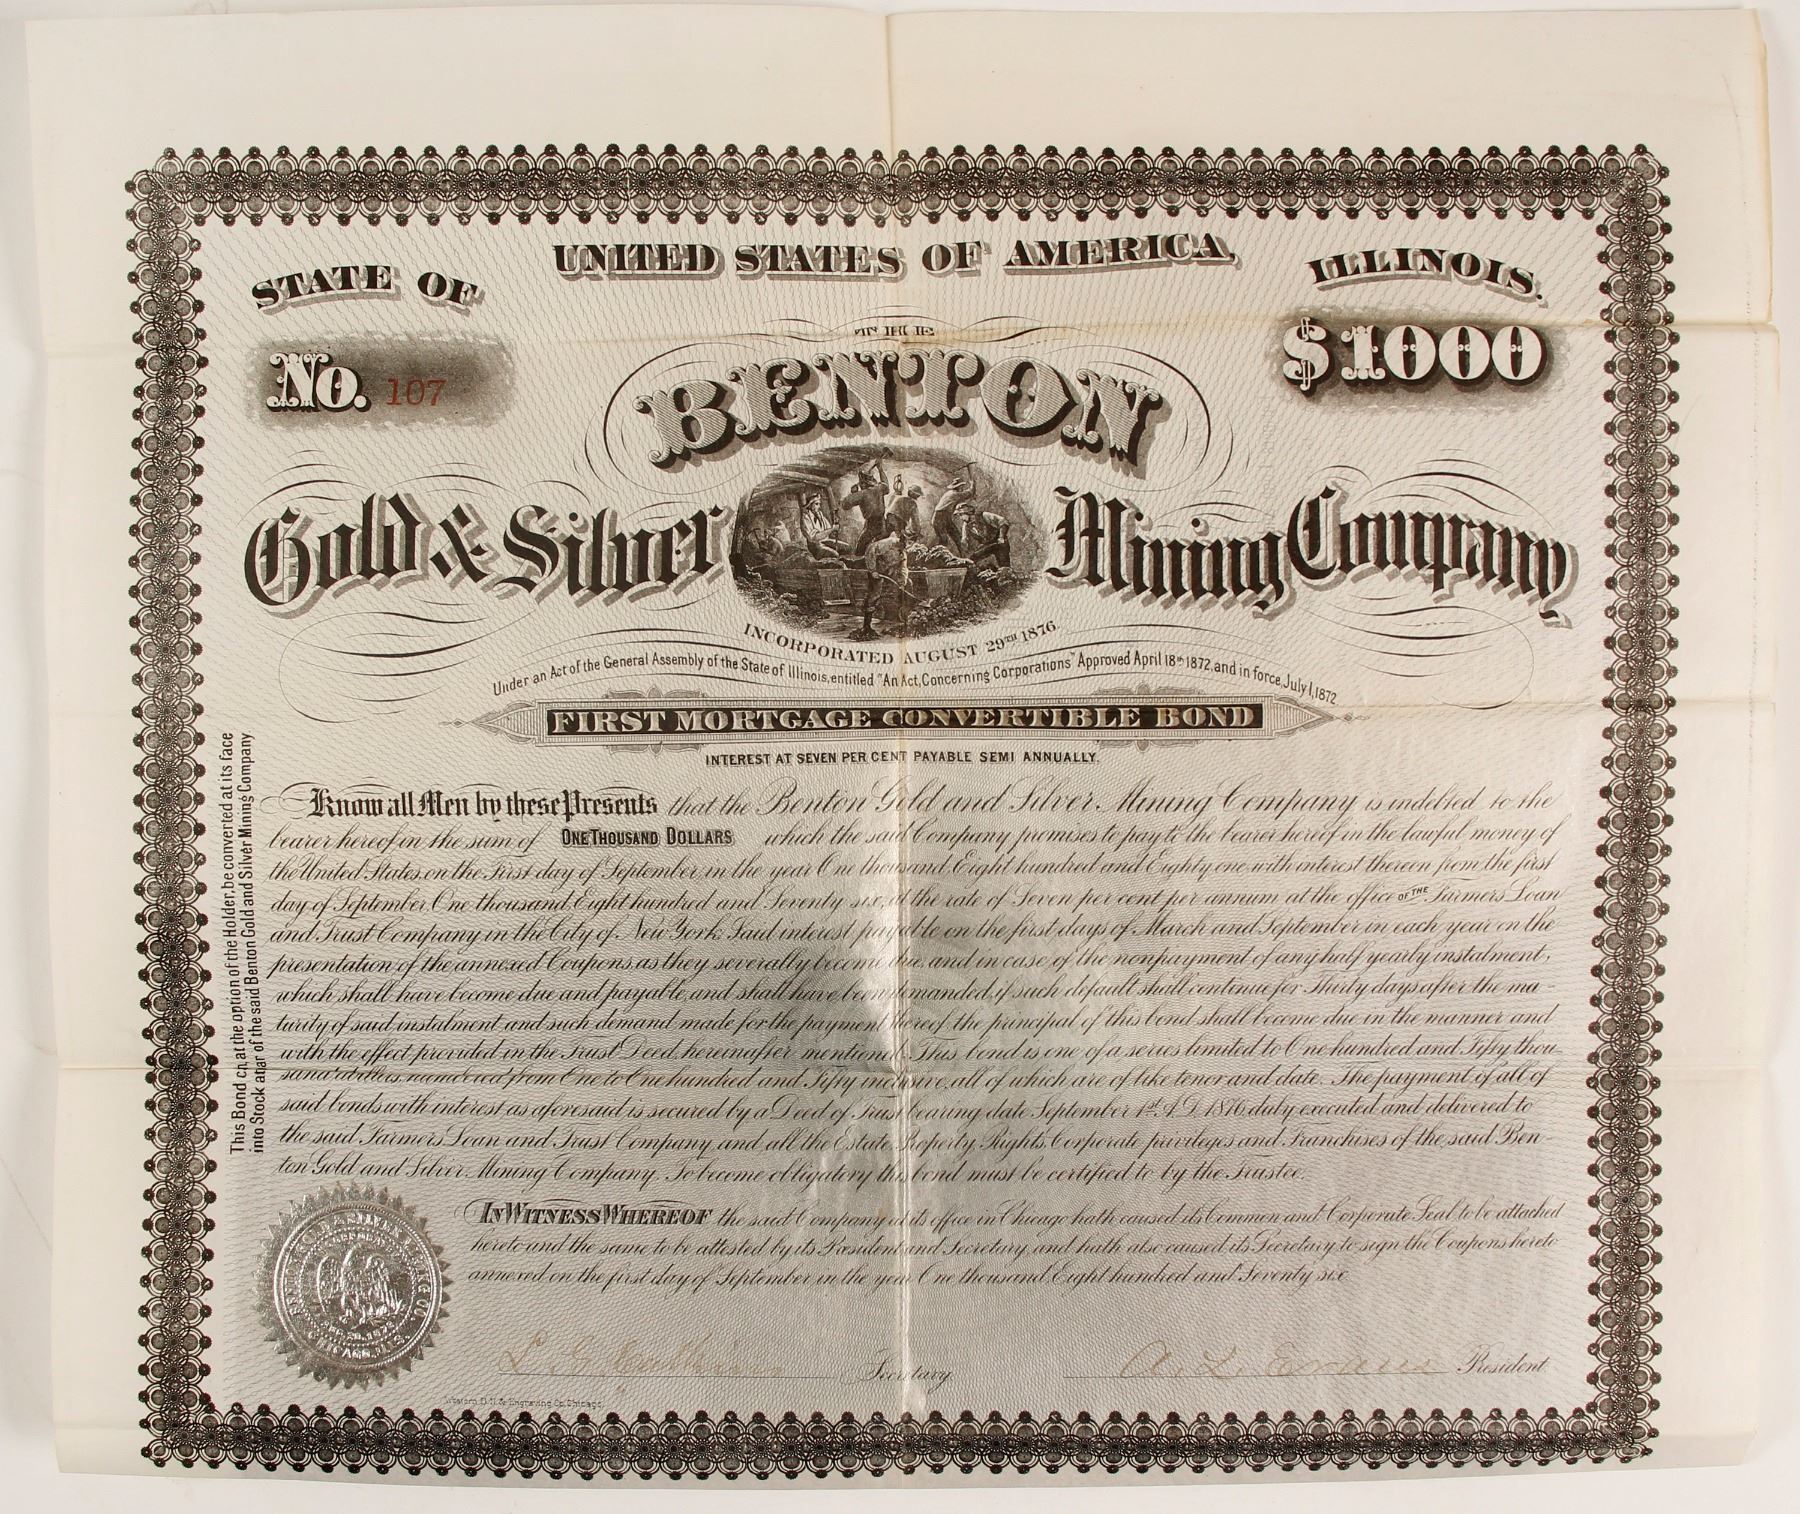 UNITED STATES OF AMERICA,
STATE OF ILLINOIS.
No. 107
$1000
THE
BENTON
Gold & Silver Mining Company
INCORPORATED AUGUST 29TH 1876
Under an Act of the General Assembly of the State of Illinois, entitled "An Act, Concerning Corporations" Approved April 18th 1872, and in force, July 1, 1872
FIRST MORTGAGE CONVERTIBLE BOND
INTEREST AT SEVEN PER CENT PAYABLE SEMI ANNUALLY.
Know all Men by these Presents that the Benton Gold and Silver Mining Company is indebted to the
bearer hereof in the sum of ONE THOUSAND DOLLARS which the said Company promises to pay to the bearer hereof in the lawful money of
the United States, on the First day of September, in the year One thousand Eight hundred and Eighty one with interest thereon from the first
day of September, One thousand Eight hundred and Seventy six, at the rate of Seven per cent per annum at the office OF THE Farmers Loan
and Trust Company in the City of New York, Said interest payable on the first days of March and September in each year on the
presentation of the annexed Coupons, as they severally become due, and in case of the nonpayment of any half yearly instalment,
which shall have become due and payable, and shall have been demanded, if such default shall continue for Thirty days after the ma-
turity of said instalment and such demand made for the payment thereof, the principal of this bond shall become due in the manner and
with the effect provided in the Trust Deed hereinafter mentioned. This bond is one of a series limited to One hundred and Fifty thou-
sand dollars numbered from One to One hundred and Fifty inclusive, all of which are of like tenor and date. The payment of all of
said bonds with interest as aforesaid is secured by a Deed of Trust bearing date September 1st A.D. 1876, duly executed and delivered to
the said Farmers Loan and Trust Company and all the Estate, Property, Rights, Corporate privileges and Franchises of the said Ben-
ton Gold and Silver Mining Company. To become obligatory this bond must be certified to by the Trustee.
IN WITNESS WHEREOF the said Company at its office in Chicago hath caused its Common and Corporate Seal to be attached
hereto and the same to be attested by its President and Secretary, and hath also caused its Secretary to sign the Coupons hereto
annexed on the first day of September in the year One thousand Eight hundred and Seventy six
Secretary
A. L. Evans President
Western B. N. & Engraving Co. Chicago.
This Bond can at the option of the Holder, be converted at its face
into Stock at par of the said Benton Gold and Silver Mining Company
CHICAGO, ILLS.